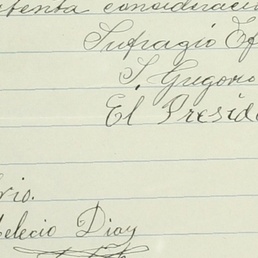 atenta consideració
Sufragio Ef
S. Gregorio
El Presid
rio.
elecio Diaz